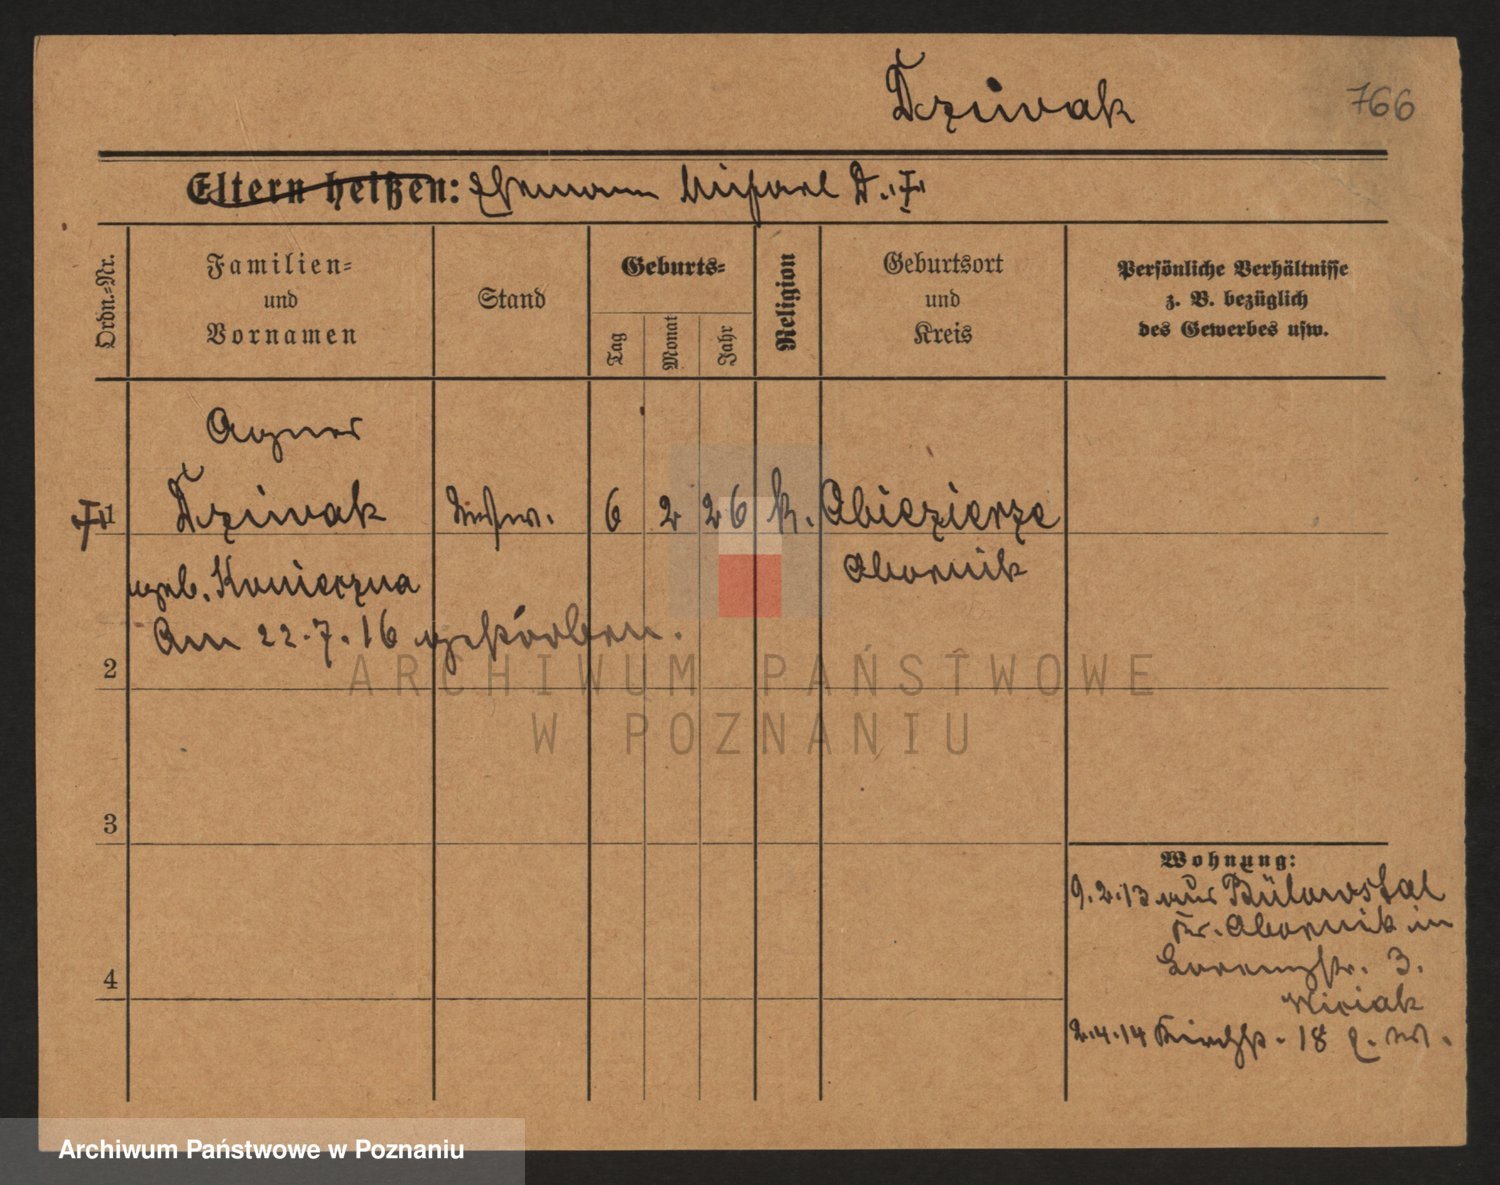 Dziwak
766
Eltern heißen: Ehemann Michael D. †
Ordn.-Nr.
Familien-
und
Vornamen
Stand
Geburts-
Tag
Monat
Jahr
Religion
Geburtsort
und
Kreis
Persönliche Verhältnisse
z. B. bezüglich
des Gewerbes usw.
Agnes
† 1 Dziwak Witwe. 6 2 26 k. Obiezierze
geb. Konieczna Obornik
Am 22.7.16 gestorben.
2
3
4
Wohnung:
9.2.13 aus Bülowstal
Kr. Obornik in
Lorenzstr. 3.
Wiciak
2.4.14 Kirchstr. 18
ARCHIWUM PAŃSTWOWE
W POZNANIU
Archiwum Państwowe w Poznaniu